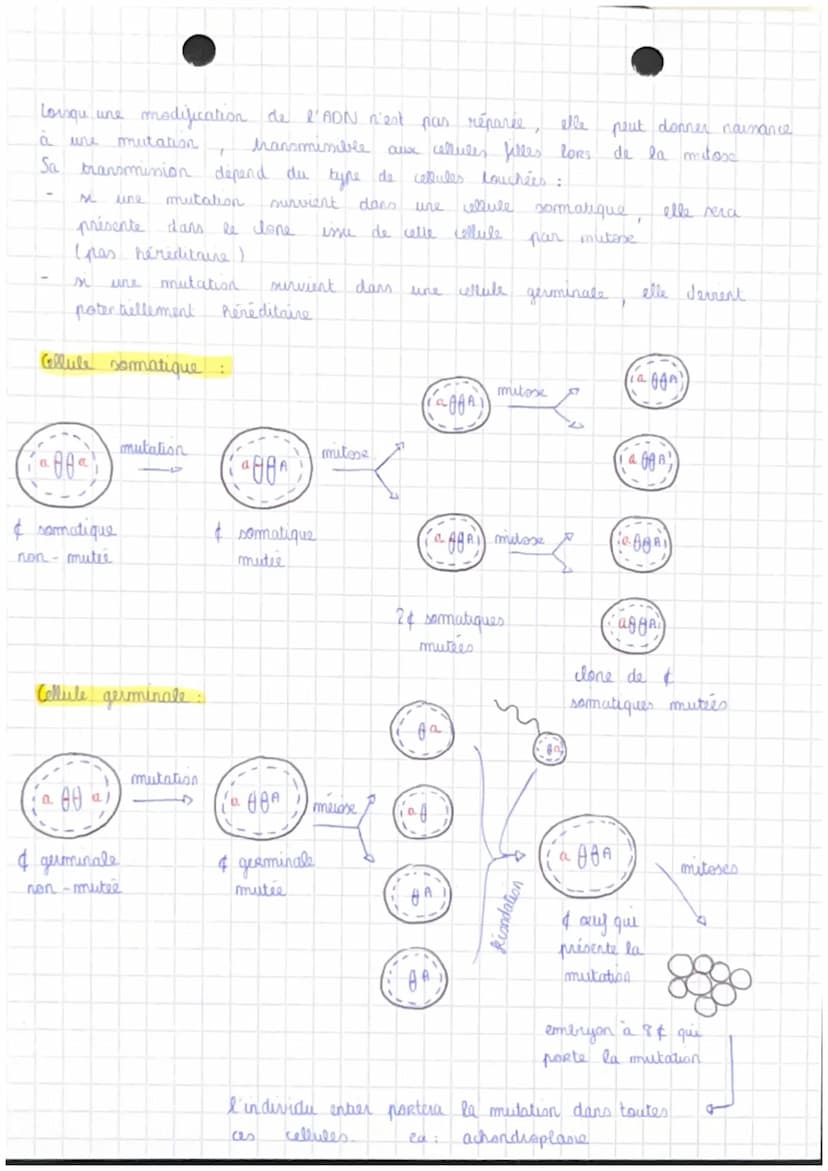 Lorsqu'une modification de l'ADN n'est pas réparée, elle peut donner naissance
à une mutation, transmissible aux cellules filles lors de la mitose
Sa transmission dépend du type de cellules touchées :
- si une mutation survient dans une cellule somatique, elle sera
présente dans le clone issu de cette cellule par mitose
(pas héréditaire)
- si une mutation survient dans une cellule germinale, elle devient
potentiellement héréditaire
Cellule somatique :
a a
mutation
a A
mitose
a A
mitose
a A
a A
a A
mitose
a A
a A
¢ somatique
non-mutée
¢ somatique
mutée
2¢ somatiques
mutées
clone de ¢
somatiques mutées
Cellule germinale :
a a
mutation
a A
méiose
a
a
A
A
a
fécondation
a A
mitoses
¢ germinale
non-mutée
¢ germinale
mutée
¢ œuf qui
présente la
mutation
embryon à 8¢ qui
porte la mutation
l'individu entier portera la mutation dans toutes
ces cellules. ex : achondroplasie